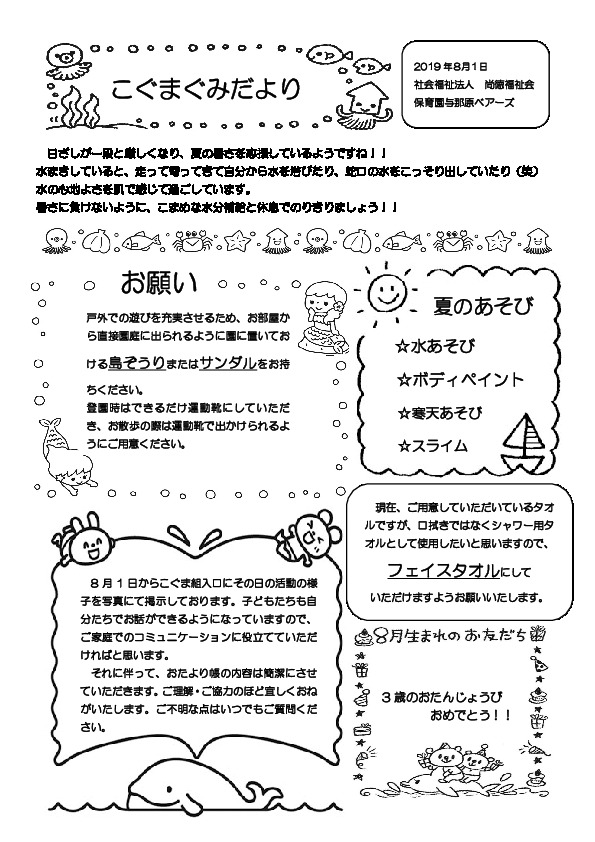 こぐまぐみだより
2019年8月1日
社会福祉法人　尚徳福祉会
保育園与那原ベアーズ
日ざしが一段と厳しくなり、夏の暑さを応援しているようですね！！
水まきしていると、走って寄ってきて自分から水を浴びたり、蛇口の水をこっそり出していたり（笑）
水の心地よさを肌で感じて過ごしています。
暑さに負けないように、こまめな水分補給と休息でのりきりましょう！！
お願い
戸外での遊びを充実させるため、お部屋か
ら直接園庭に出られるように園に置いてお
ける島ぞうりまたはサンダルをお持
ちください。
登園時はできるだけ運動靴にしていただ
き、お散歩の際は運動靴で出かけられるよ
うにご用意ください。
夏のあそび
☆水あそび
☆ボディペイント
☆寒天あそび
☆スライム
現在、ご用意していただいているタオ
ルですが、口拭きではなくシャワー用タ
オルとして使用したいと思いますので、
フェイスタオルにして
いただけますようお願いいたします。
８月１日からこぐま組入口にその日の活動の様
子を写真にて掲示しております。子どもたちも自
分たちでお話ができるようになっていますので、
ご家庭でのコミュニケーションに役立てていただ
ければと思います。
それに伴って、おたより帳の内容は簡潔にさせ
ていただきます。ご理解・ご協力のほど宜しくおね
がいたします。ご不明な点はいつでもご質問くだ
さい。
8月生まれのお友だち
３歳のおたんじょうび
おめでとう！！